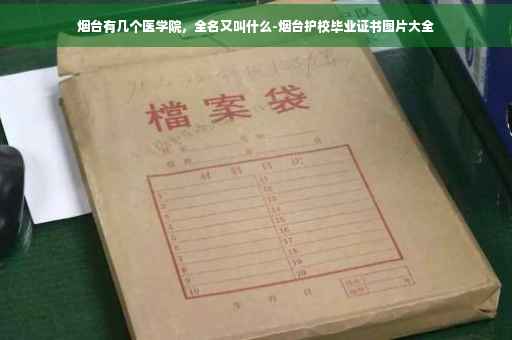 烟台有几个医学院，全名又叫什么-烟台护校毕业证书图片大全
檔案袋
材料目次
1 11
2 12
3 13
4 14
5 15
6 16
7 17
8 18
9 19
10 20
年 月 日